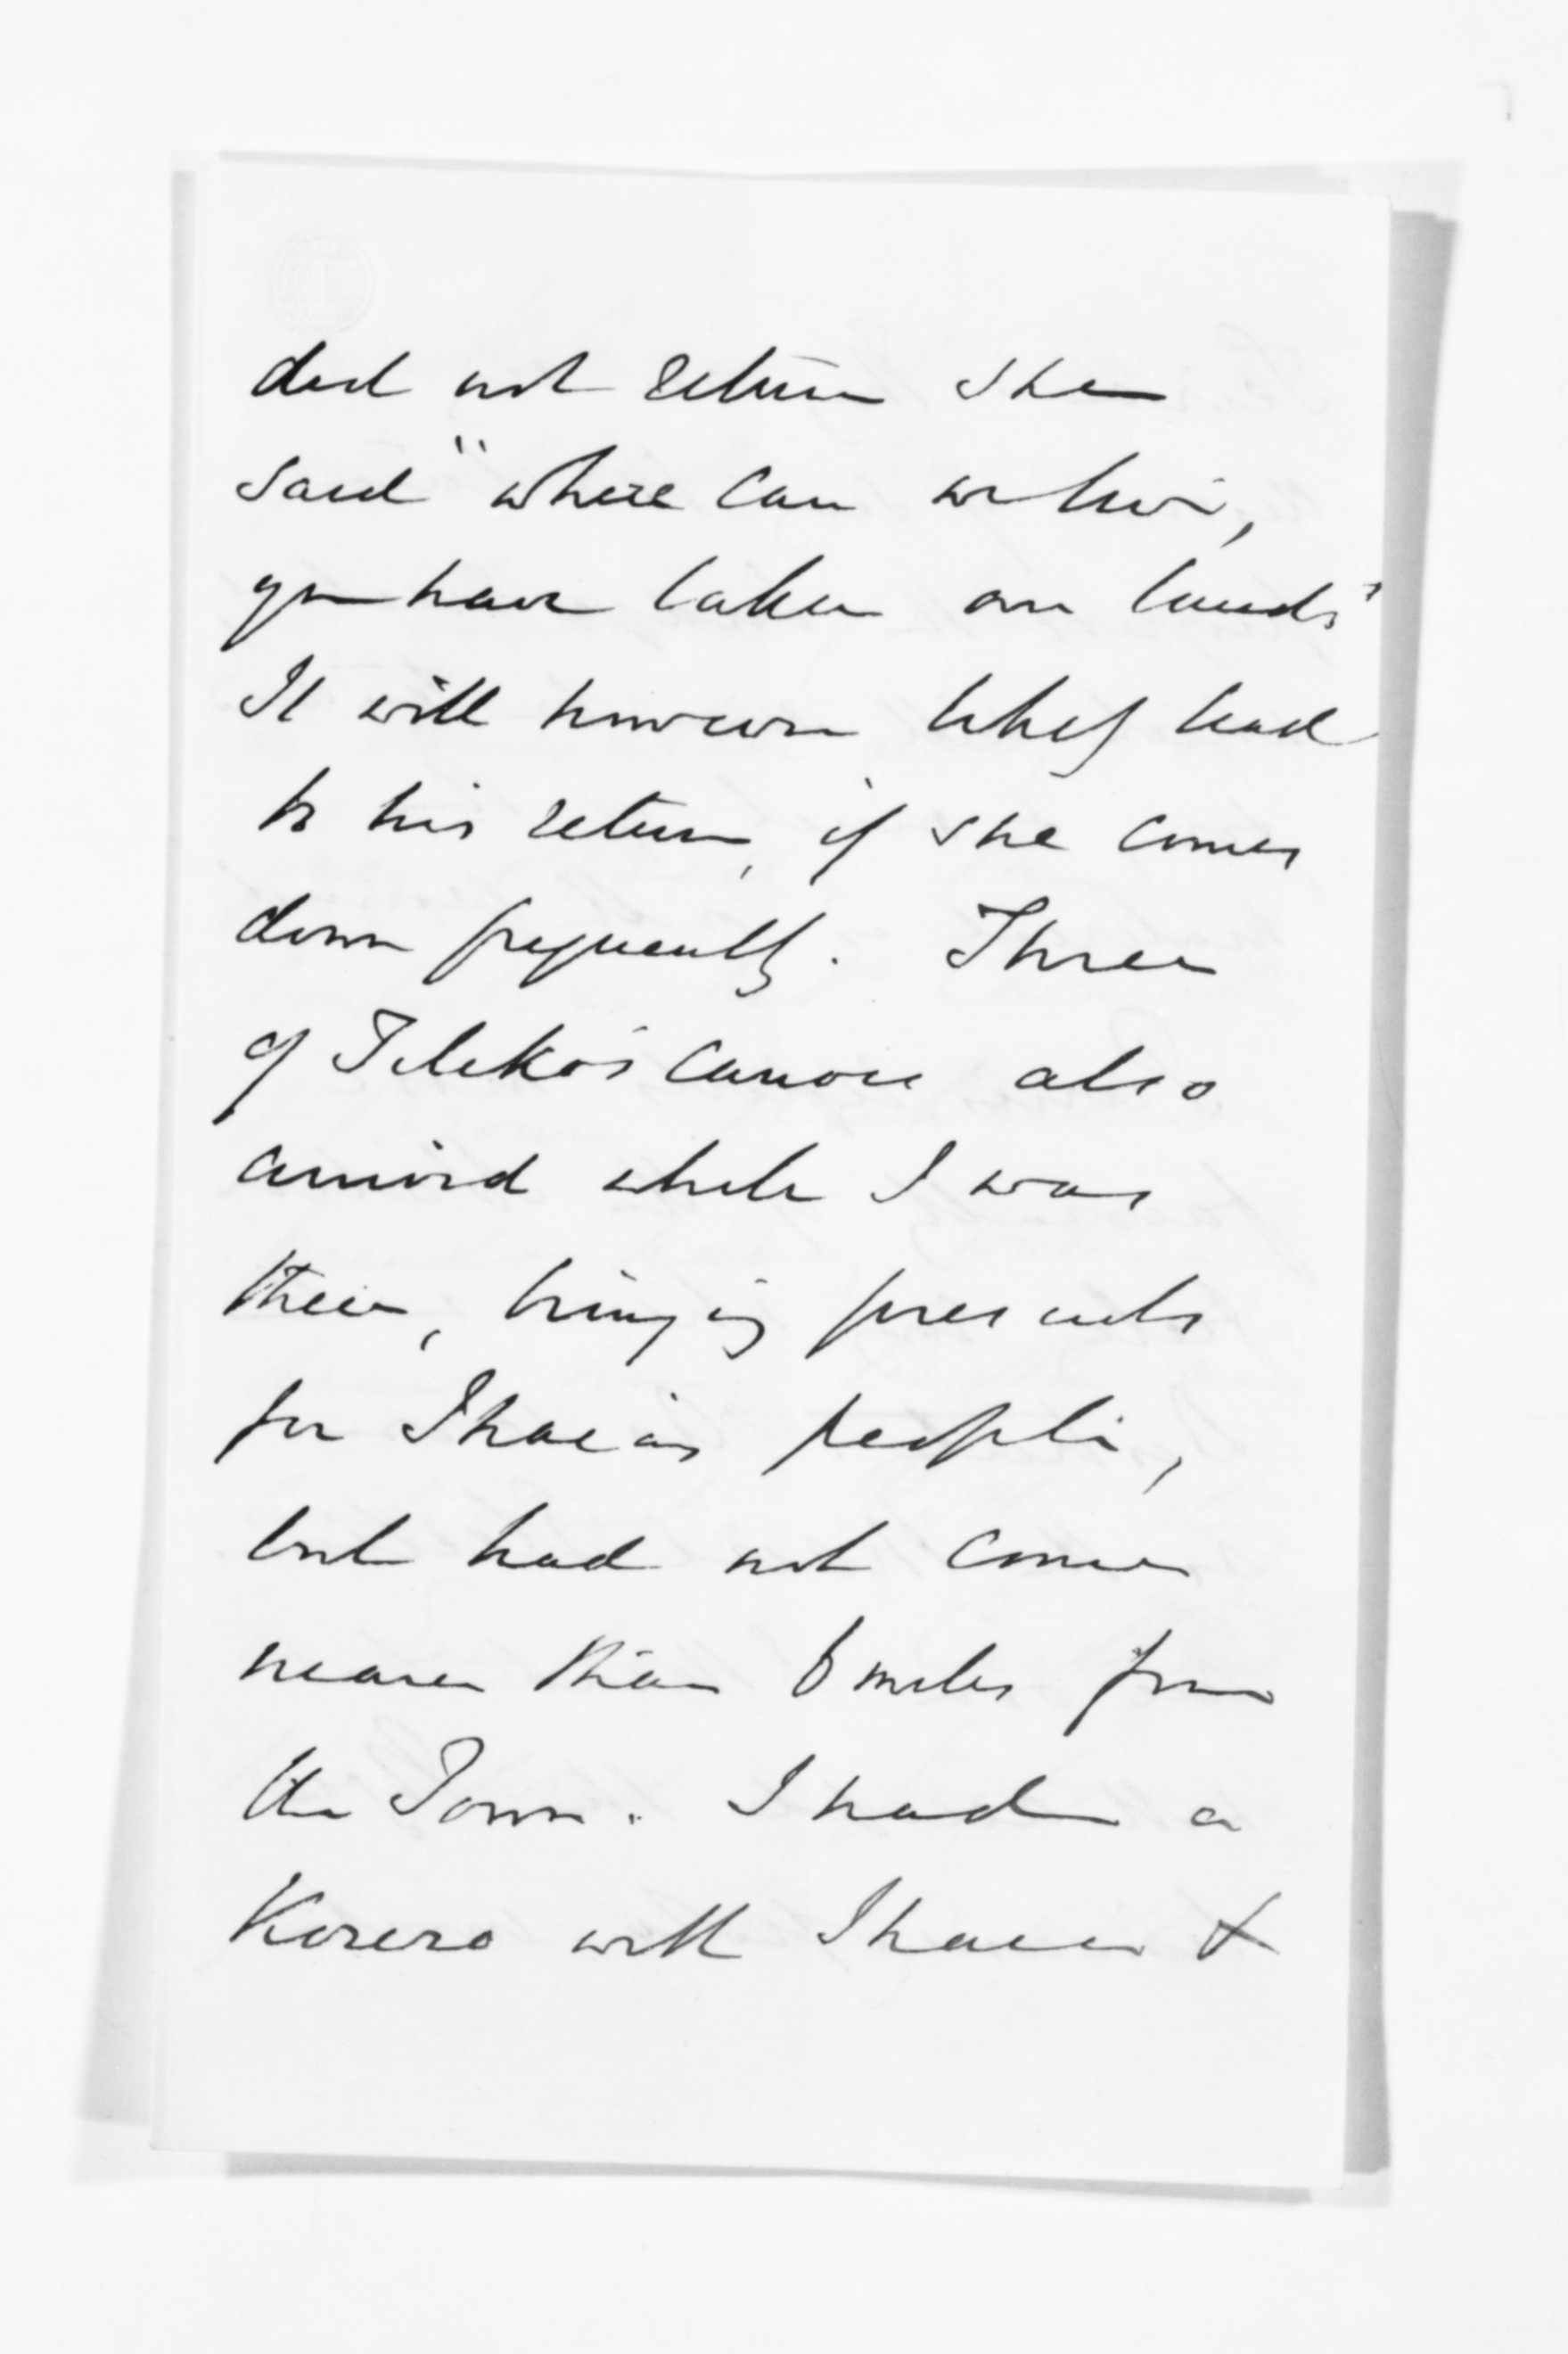 did not return she
said "where can we live,
you have taken our lands"
It will however likely lead
to his return, if she comes
down frequently. Three
of Teleko's canoes also
arrived while I was
there, bringing presents
for Ihaeia's people,
but had not come
nearer than 6 miles from
the Town. I had a
Korero with Ihaeia &